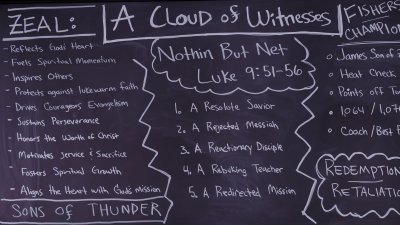 ZEAL:
- Reflects God's Heart
- Fuels Spiritual Momentum
- Inspires Others
- Protects against lukewarm faith
- Drives Courageous Evangelism
- Sustains Perseverance
- Honors the Worth of Christ
- Motivates Service & Sacrifice
- Fosters Spiritual Growth
- Aligns the Heart with God's mission
SONS OF THUNDER
A CLOUD OF WITNESSES
Nothin But Net
Luke 9:51-56
1. A Resolute Savior
2. A Rejected Messiah
3. A Reactionary Disciple
4. A Rebuking Teacher
5. A Redirected Mission
FISHERS
CHAMPION
James Son of
Heat Check
Points off To
1064 / 1,07
Coach/Best F
REDEMPTION
RETALIATIO